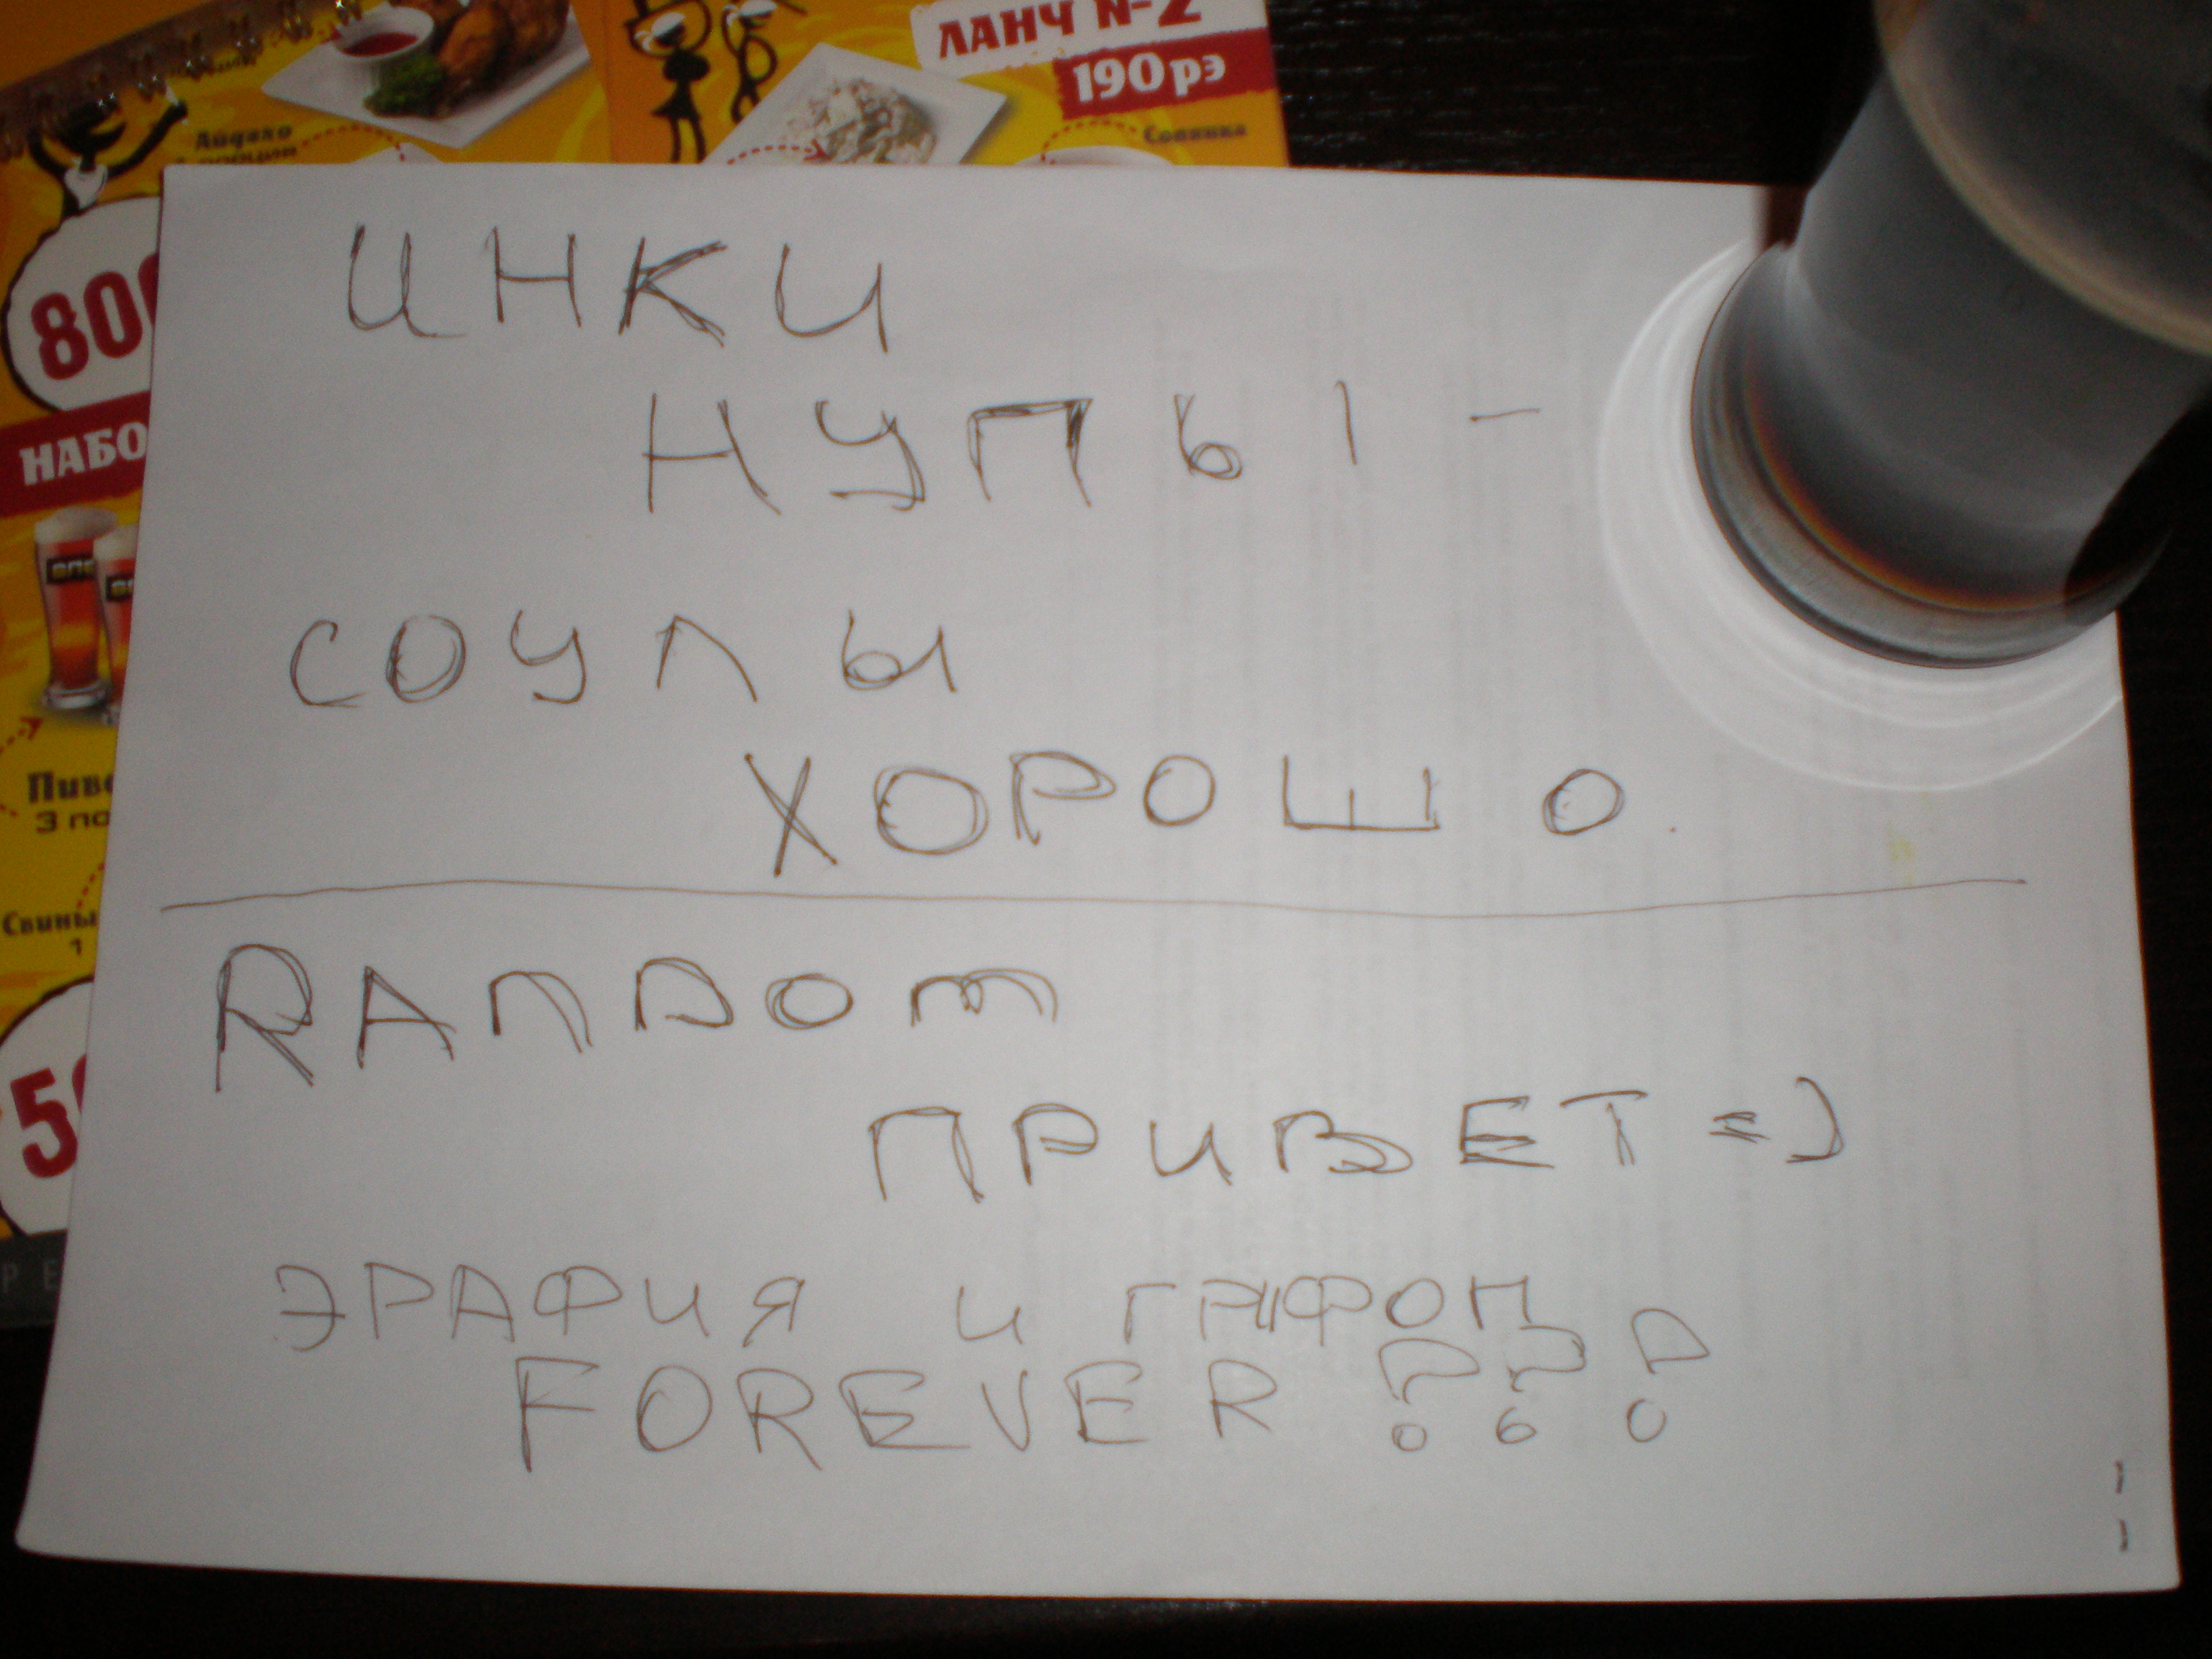 ЛАНЧ N-2
190 рэ
Айдахо
Солянка
800
НАБО
Пиво
3 по
Свины
1
ИНКИ
НУПЫ -
СОУЛЫ
ХОРОШО.
RANDOM
ПРИВЕТ =)
ЭРАФИЯ И ГРИФОН
FOREVER !!!